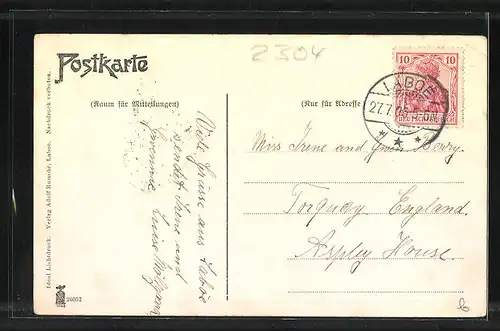 2304
Postkarte
(Raum für Mitteilungen)
(Nur für Adresse)
10 10
LABOE
27.7.05
DEUTSCHES REICH
Viele Grüsse aus Laboe
sendet Irene und
Luise
Miss Irene and Berry.
Torquay England.
Aspley House.
Ideal Lichtdruck. Verlag Adolf Rumohr, Laboe. Nachdruck verboten.
6